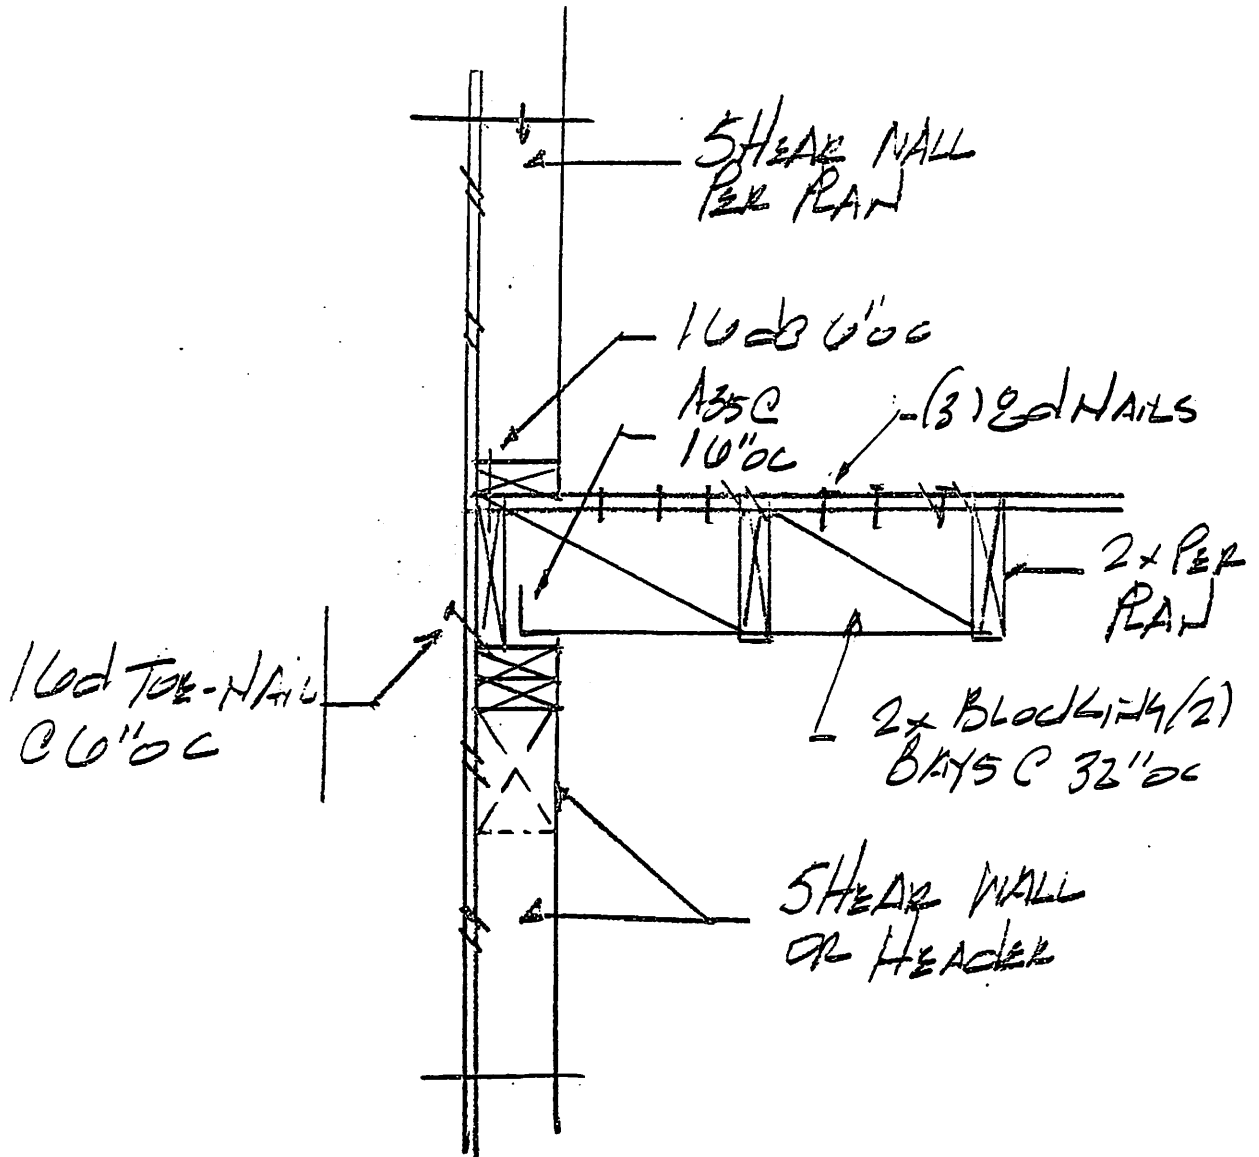 SHEAR WALL
PER PLAN
16d@ 6"oc
A35 @
16"oc
(3) 8d NAILS
2x PER
PLAN
16d TOE-NAIL
@ 6"oc
2x BLOCKING (2)
BAYS @ 32"oc
SHEAR WALL
OR HEADER